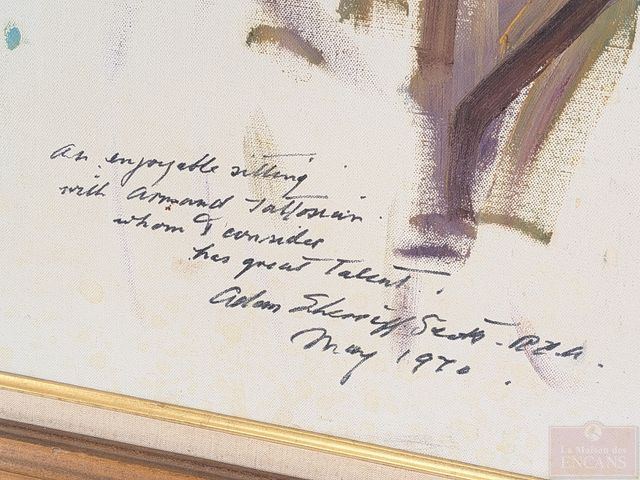 An enjoyable sitting
with Armand Tatossian.
whom I consider
has great Talent!
Adam Sherriff Scott. R.C.A.
May 1970.
La Maison des
ENCANS